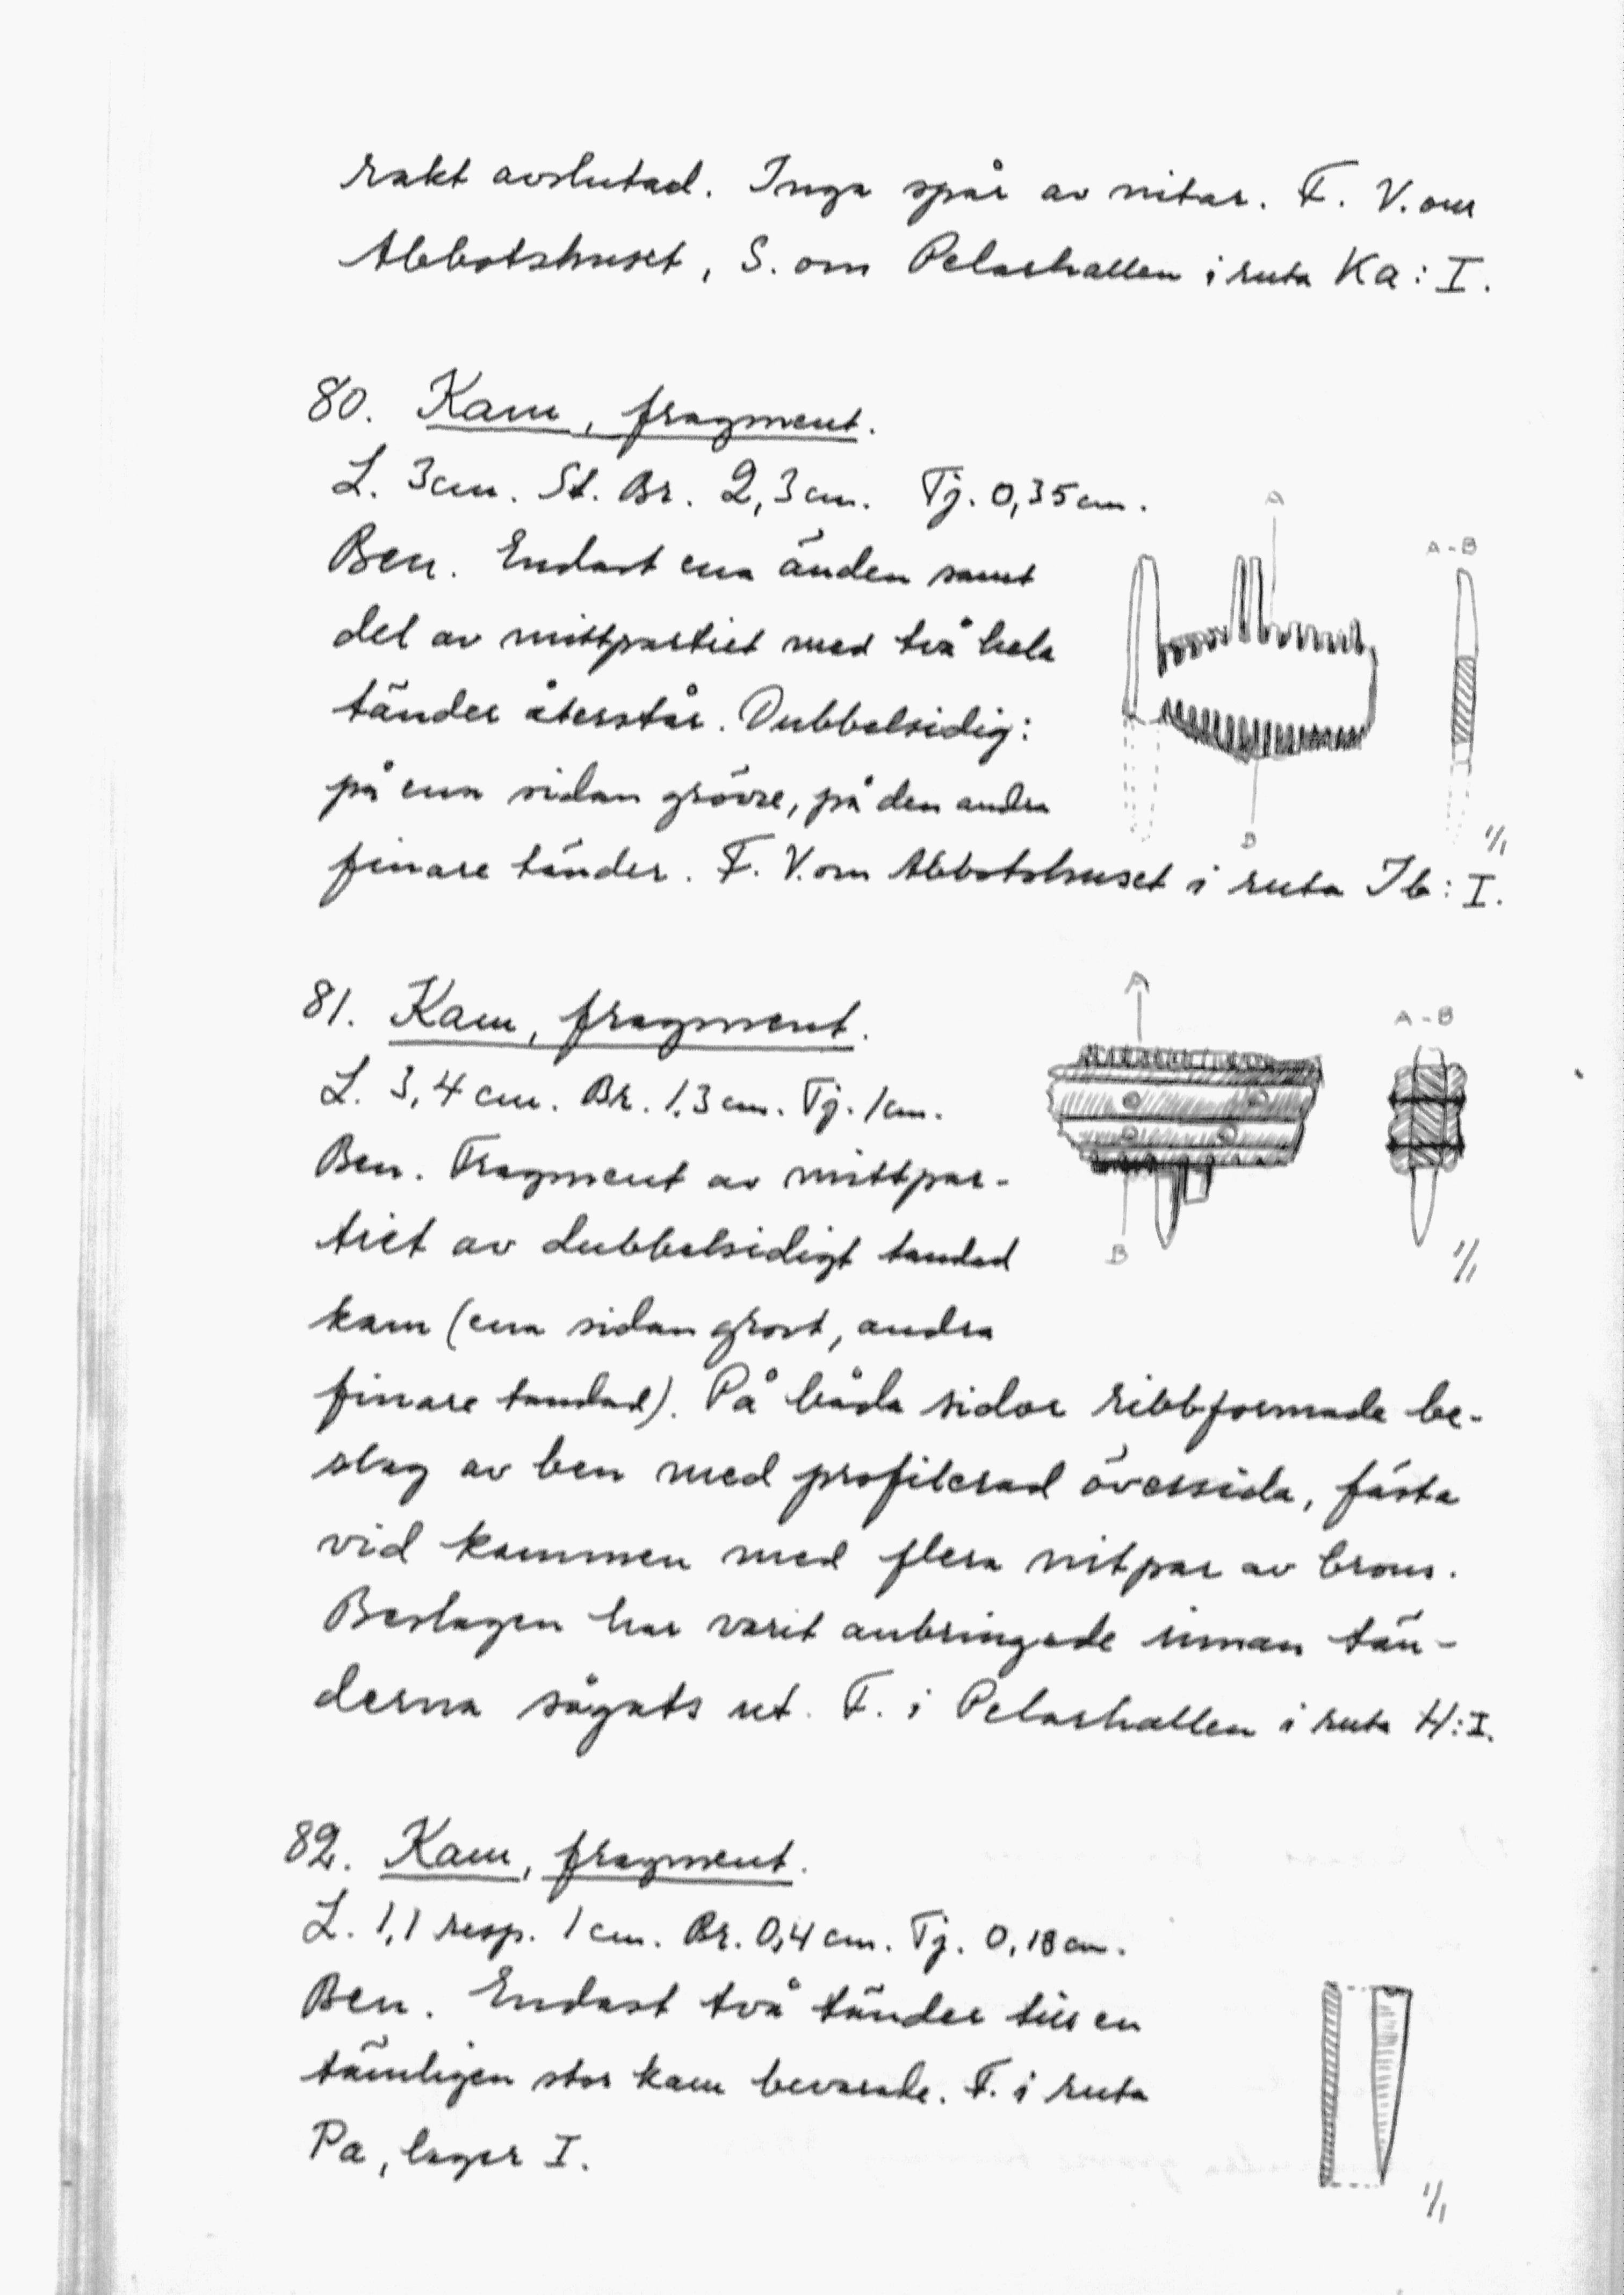 rakt avslutad. Inga spår av nitar. F. V. om
Abbotshuset, S. om Pelarhallen i ruta Ka: I.
80. Kam, fragment.
L. 3 cm. St. Br. 2,3 cm. Tj. 0,35 cm.
Ben. Endast ena änden samt
del av mittpartiet med två hela
tänder återstår. Dubbelsidig:
på ena sidan grövre, på den andra
finare tänder. F. V. om Abbotshuset i ruta Ib: I.
A
A-B
B
1/1
81. Kam, fragment.
L. 3,4 cm. Br. 1,3 cm. Tj. 1 cm.
Ben. Fragment av mittpar-
tiet av dubbelsidigt tandad
kam (ena sidan grovt, andra
finare tandad). På båda sidor ribbformade be-
slag av ben med profilerad översida, fästa
vid kammen med flera nitpar av brons.
Beslagen har varit anbringade innan tän-
derna sågats ut. F. i Pelarhallen i ruta H: I.
A
A-B
B
1/1
82. Kam, fragment.
L. 1,1 resp. 1 cm. Br. 0,4 cm. Tj. 0,18 cm.
Ben. Endast två tänder till en
tämligen stor kam bevarade. F. i ruta
Pa, lager I.
1/1